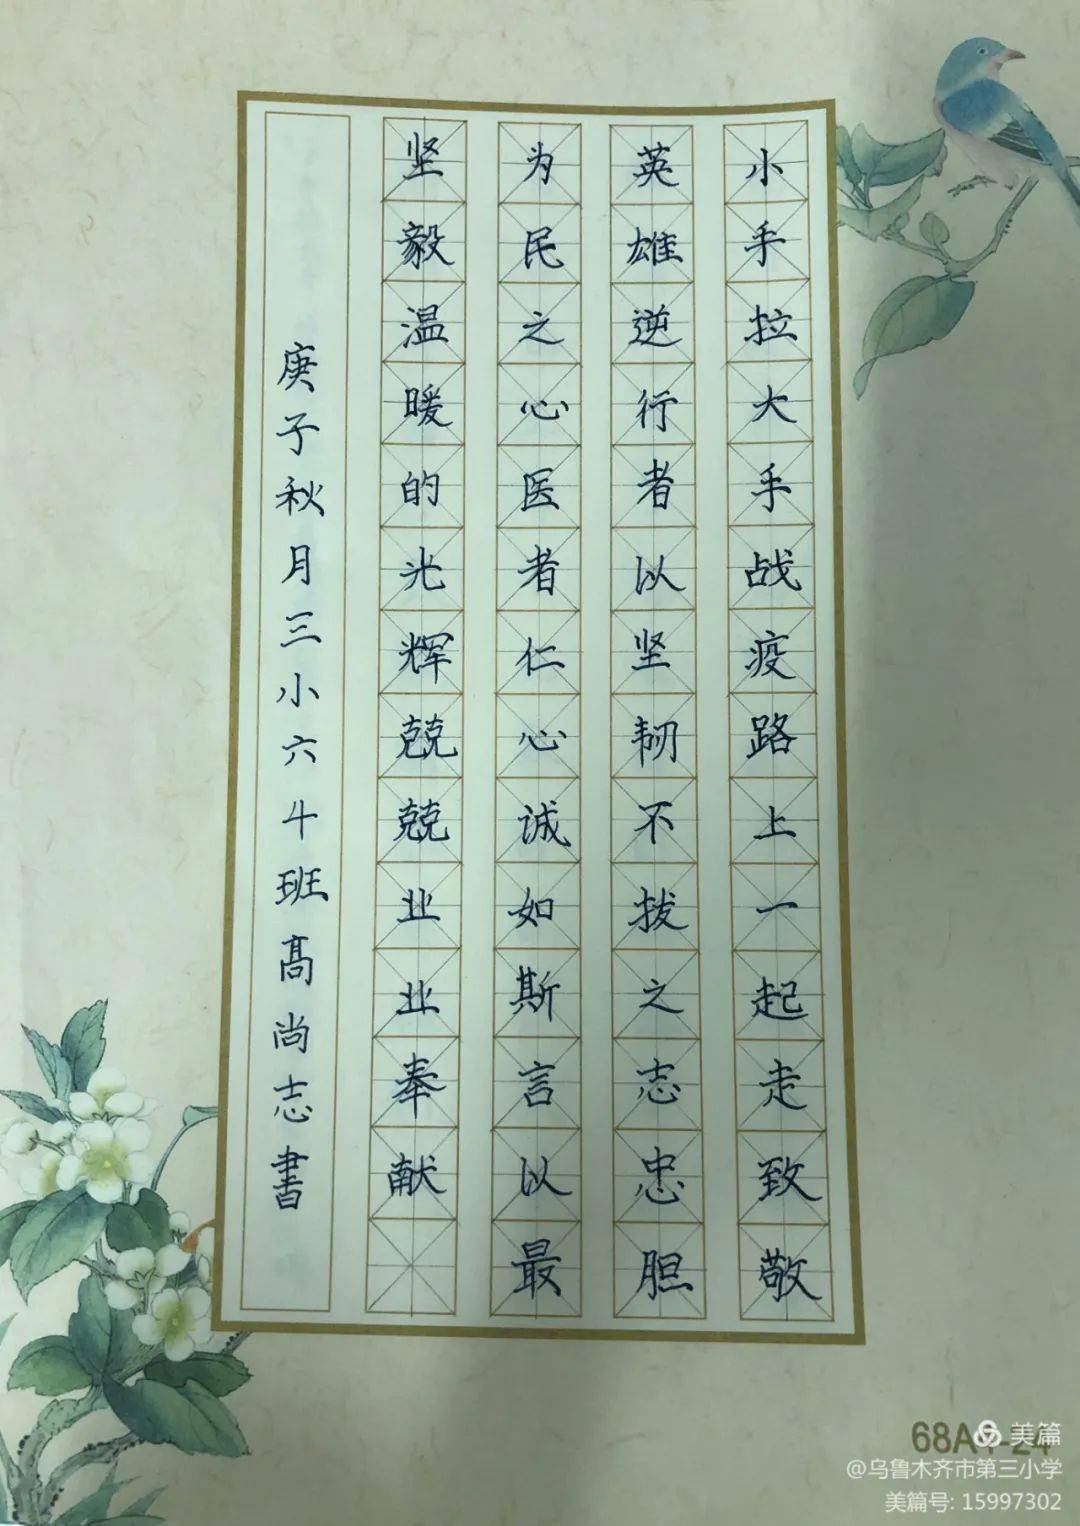 小手拉大手战疫路上一起走致敬
英雄逆行者以坚韧不拔之志忠胆
为民之心医者仁心诚如斯言以最
坚毅温暖的光辉兢兢业业奉献
庚子秋月三小六4班高尚志書
美篇
@乌鲁木齐市第三小学
美篇号: 15997302